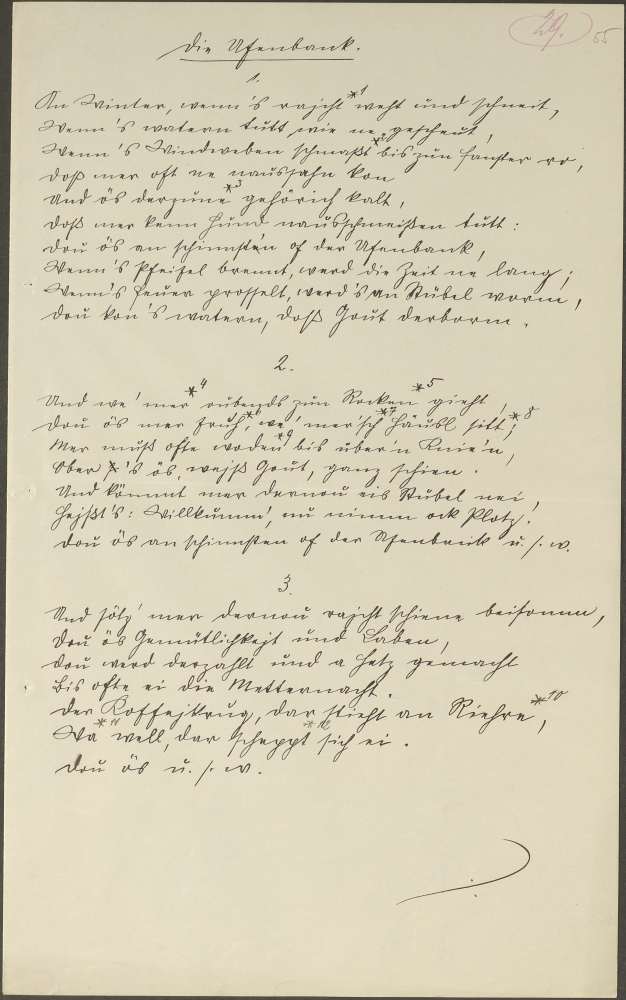 29.
55
Die Ufenbank.
1.
An Winter, wenn's rajcht *1 weht und schneit,
Wenn's watern tutt wie ne gescheut,
Wenn's Windweben schmaßt *2 bis zun Fanster ro,
Doß mer oft ne naussahn kon
Und ös derzune *3 gehörich kalt,
Doß mer kenn Hund nausschmeißen tutt:
Dou ös an schinnsten of der Ufenbank,
Wenn's Pfeifel brennt, werd die Zeit ne lang;
Wenn's Feuer prosselt, werd's an Stübel worm,
Dou kon's watern, doß Gout derborm.
2.
Und we' mer *4 oubends zun Rocken *5 gieht,
Dou ös mer fruh *6, we' mer sch *7 Häusl sitt *8;
Mer muß ofte woden *9 bis über'n Knie'n,
Ober 's ös, wejß Gout, ganz schien.
Und kömmt mer dernou eis Stübel nei,
Hejßt's: Willkumm', nu nimm ock Plotz.
Dou ös an schinnsten of der Ufenbank u. s. w.
3.
Und sötz' mer dernou rajcht schiene beisomm,
Dou ös Gemüttlichkejt und Laben,
Dou werd derzahlt und a Hetz gemacht
Bis ofte ei die Metternacht.
Der Koffejkrug, dar stieht an Riehre *10,
Wa *11 well, dar scheppt *12 sich ei.
Dou ös u. s. w.